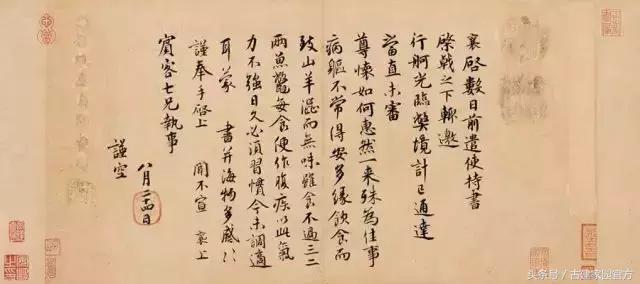 襄啓數日前遣使持書
棨戟之下輒邀
行軻光臨弊境計已通達
當直未審
尊懷如何惠然一来殊為佳事
病軀不常得安多緣飲食而
致山羊澀而無味雖食不過三二
兩魚鼈每食便作腹疾以此氣
力不強日久必須習慣今未調適
耳蒙 書并海物多感〻
謹奉手啓上 聞不宣 襄上
賓客七兄執事
八月二十四日
謹空
头条号 / 古建家园官方